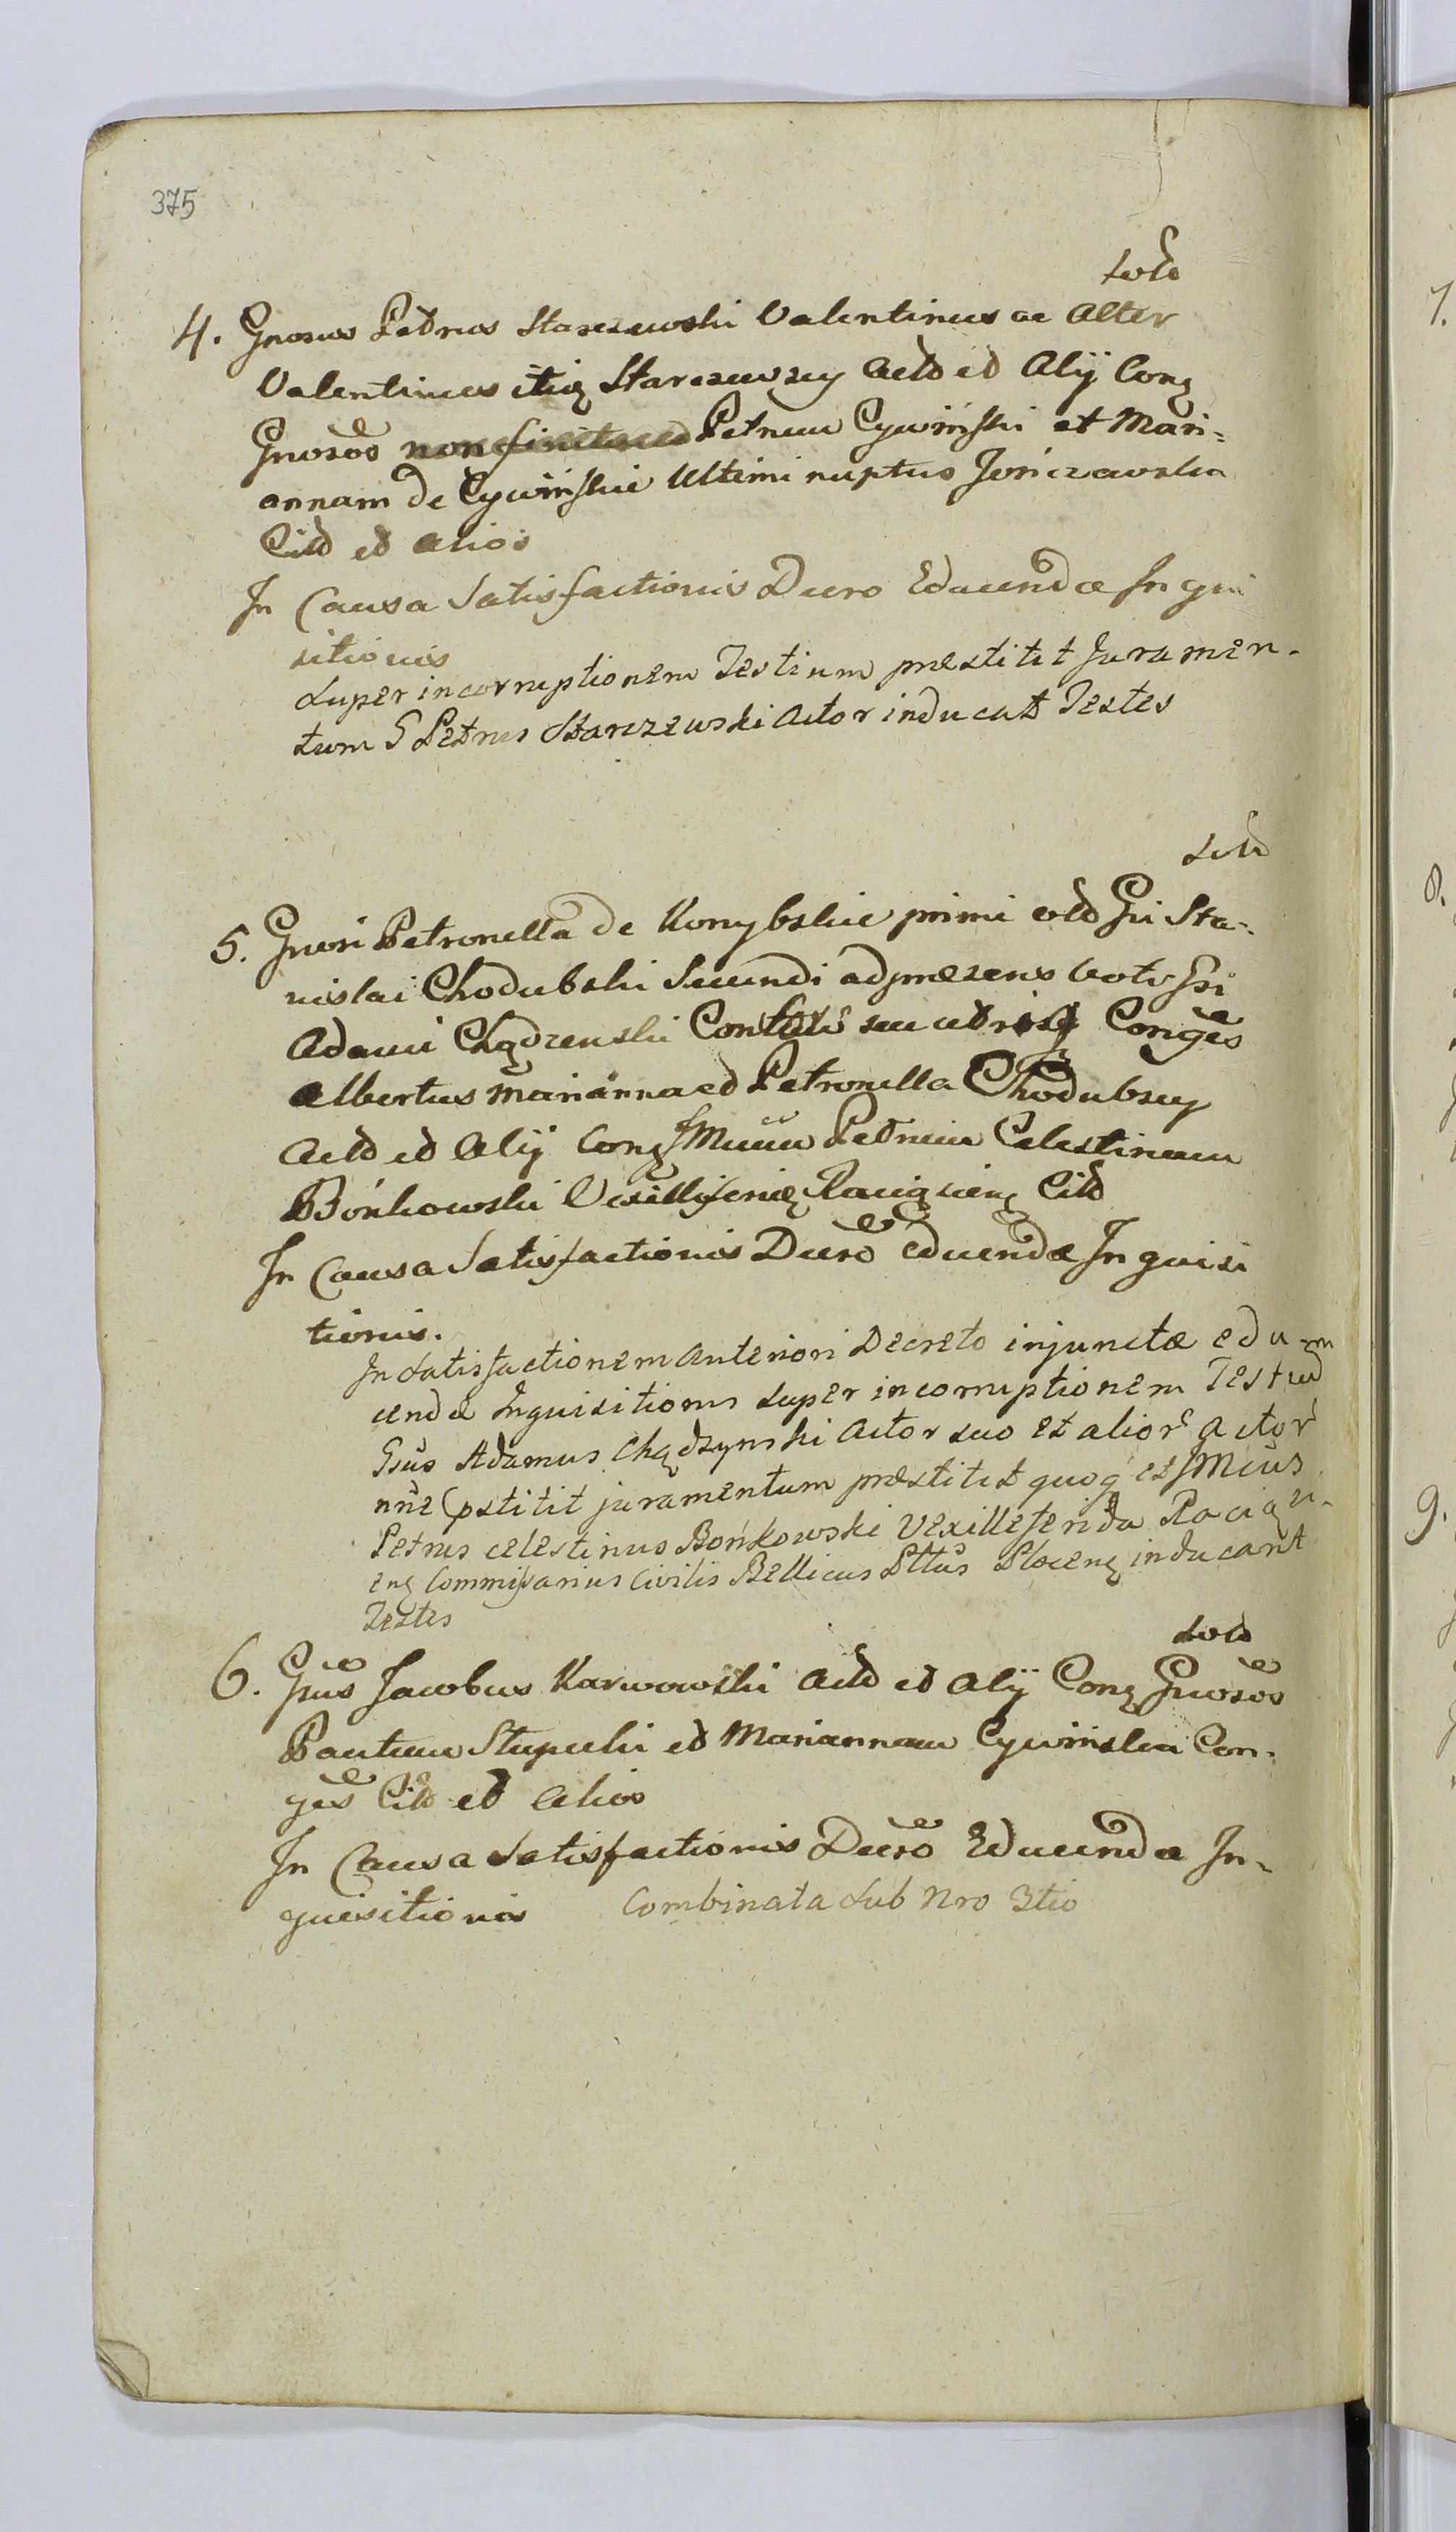 375
4. Gnosus Petrus Starczewski Valentinus ac Alter
Valentinus itiq Starczewscy Actd ed Alij Conq
Gnosos Petrum Cywiński et Mari=
annam de Cywińskie Ultimi nuptus Jeńczewska
Citd ed alios
In Causa Satisfactionis Decro Educendæ Inqui
sitionis
Super incorruptionem Testium præstitit Juramen-
tum G Petrus Starczewski Actor inducat Testes
5. Gnosi Petronella de Konybskie primi Gsi Sta-
nislai Chodubski Secundi ad præsens voti Gsi
Adami Chądzenski Conges
Albertus Marianna ed Petronella Chodubscy
Actd ed Alij Conq Mcum Petrum Celestinum
Bońkowski Vexilliferidę Raciąsieng Citd
In Causa Satisfactionis Decro educendæ Inquisi
tionis.
In Satisfactionem Anteriori Decreto injunctæ edu-
cendæ Inquisitionis super incorruptionem Testium
Gsus Adamus Chądzynski Actor suo et alior actor
nne Cpstitit juramentum præstitit quoq et Mcus
Petrus celestinus Bońkowski Vexilleferida Raciąz-
enq Commissarius Civilis Bellicus Plltus Plocenq inducant
Testes
6. Gsus Jacobus Karwowski Actd ed Alij Conq Gnosos
Pautum Stupecki ed Mariannam Cywinska Con-
ges Citd ed Alios
In Causa Satisfactionis Decro Educendæ In-
quisitionis Combinata Sub Nro 3tio
7.
8.
9.